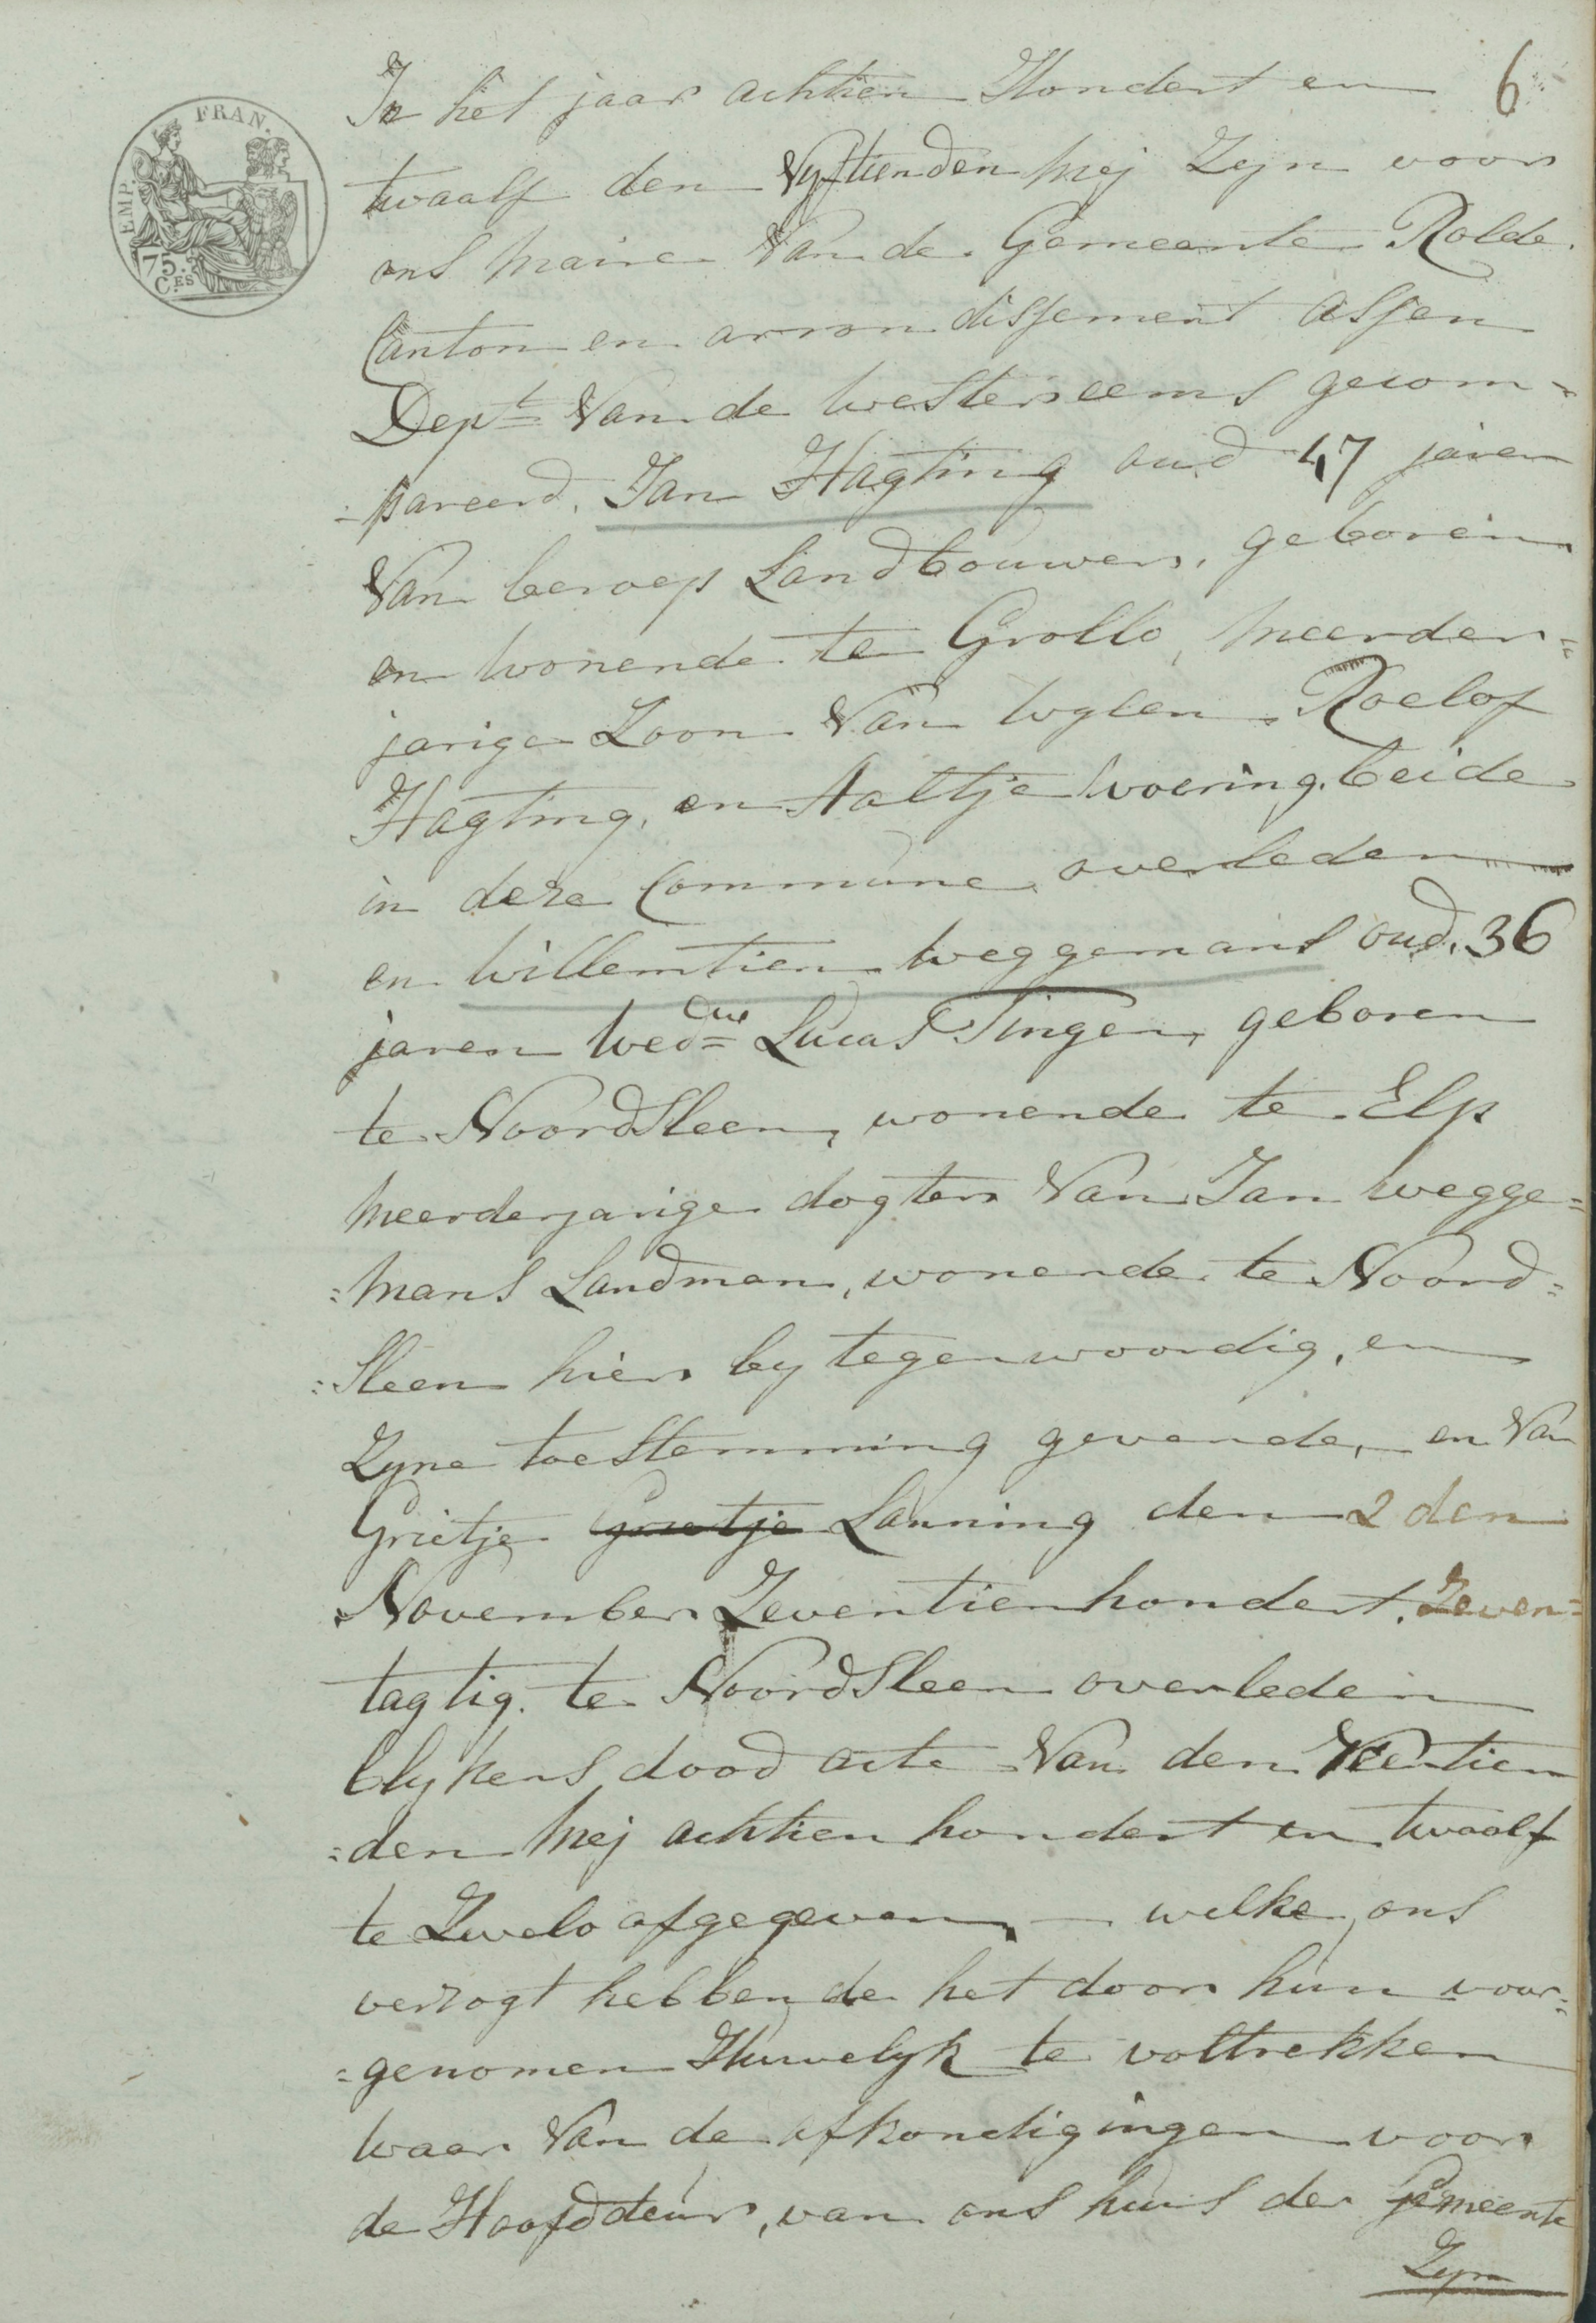 6
EMP. FRAN.
75. C.ES
In het jaar achttien Hondert en
twaalf den Vyftienden Mej Zyn voor
ons Maire Van de Gemeente Rolde.
Canton en arrondissement Assen
Dept Van de Westereems gecom=
=pareerd. Jan Hagting oud 47 jaren
Van beroep Landbouwer, geboren
en wonende te Grollo, Meerder=
jarige Zoon Van Wylen Roelof
Hagting, en Aaltje Woering. beide
in deze Commune overleden
en Willemtien Weggemans oud. 36
jaren Wedue Lucas Tingen, geboren
te Noordsleen, wonende te Elp
Meerderjarige dogter Van Jan Wegge=
=mans Landman, wonende te Noord=
=sleen hier by tegenwoordig, en
Zyne toestemming gevende, en Van
Grietje Grietje Lanning den 2 den
November Zeventienhondert. Zeven=
tagtig. te Noordsleen overleden
blykens dood acte Van den Veertien
=den Mej achtien hondert en twaalf
te Zwelo afgegeven, welke ons
verzogt hebbende het door hun voor=
=genomen Huwelyk te voltrekken
Waar Van de afkondigingen voor
de Hoofddeur, van ons huis der Gemeente
Zyn